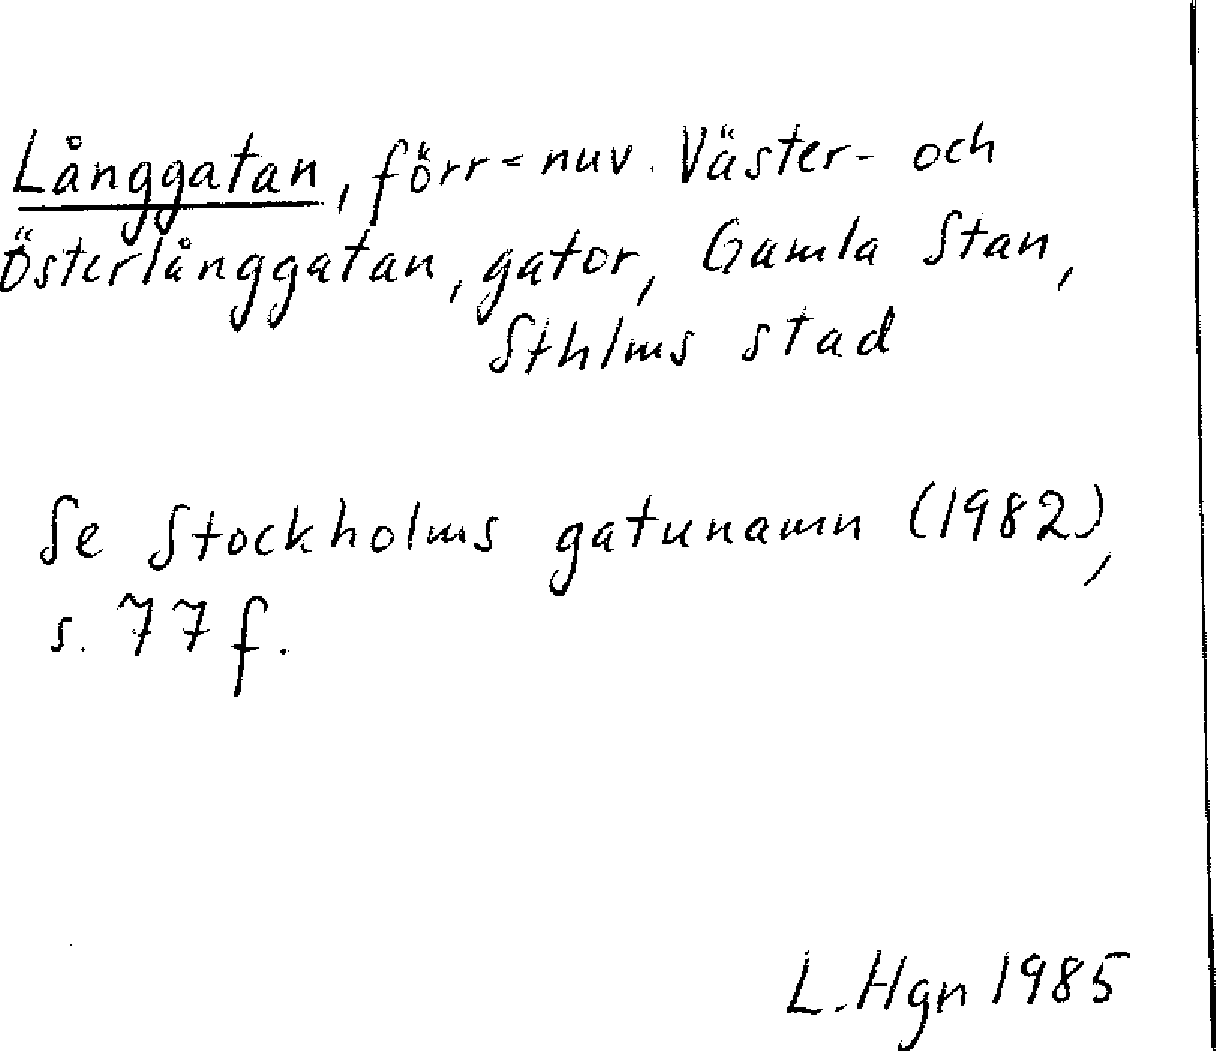 Långgatan, förr = nuv. Väster- och
Österlånggatan, gator, Gamla Stan,
Sthlms stad
Se Stockholms gatunamn (1982),
s. 77 f.
L. Hgn 1985